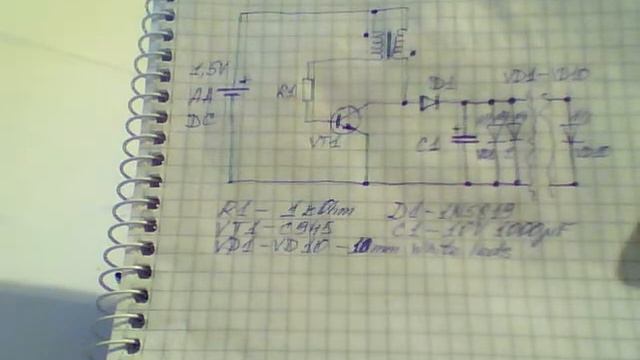 1,5V
AA
DC
R1
VT1
D1
C1
VD1-VD10
R1 - 1 kOhm
D1 - 1N5819
VT1 - C945
C1 - 16V 1000µF
VD1-VD10 - 10mm white leds